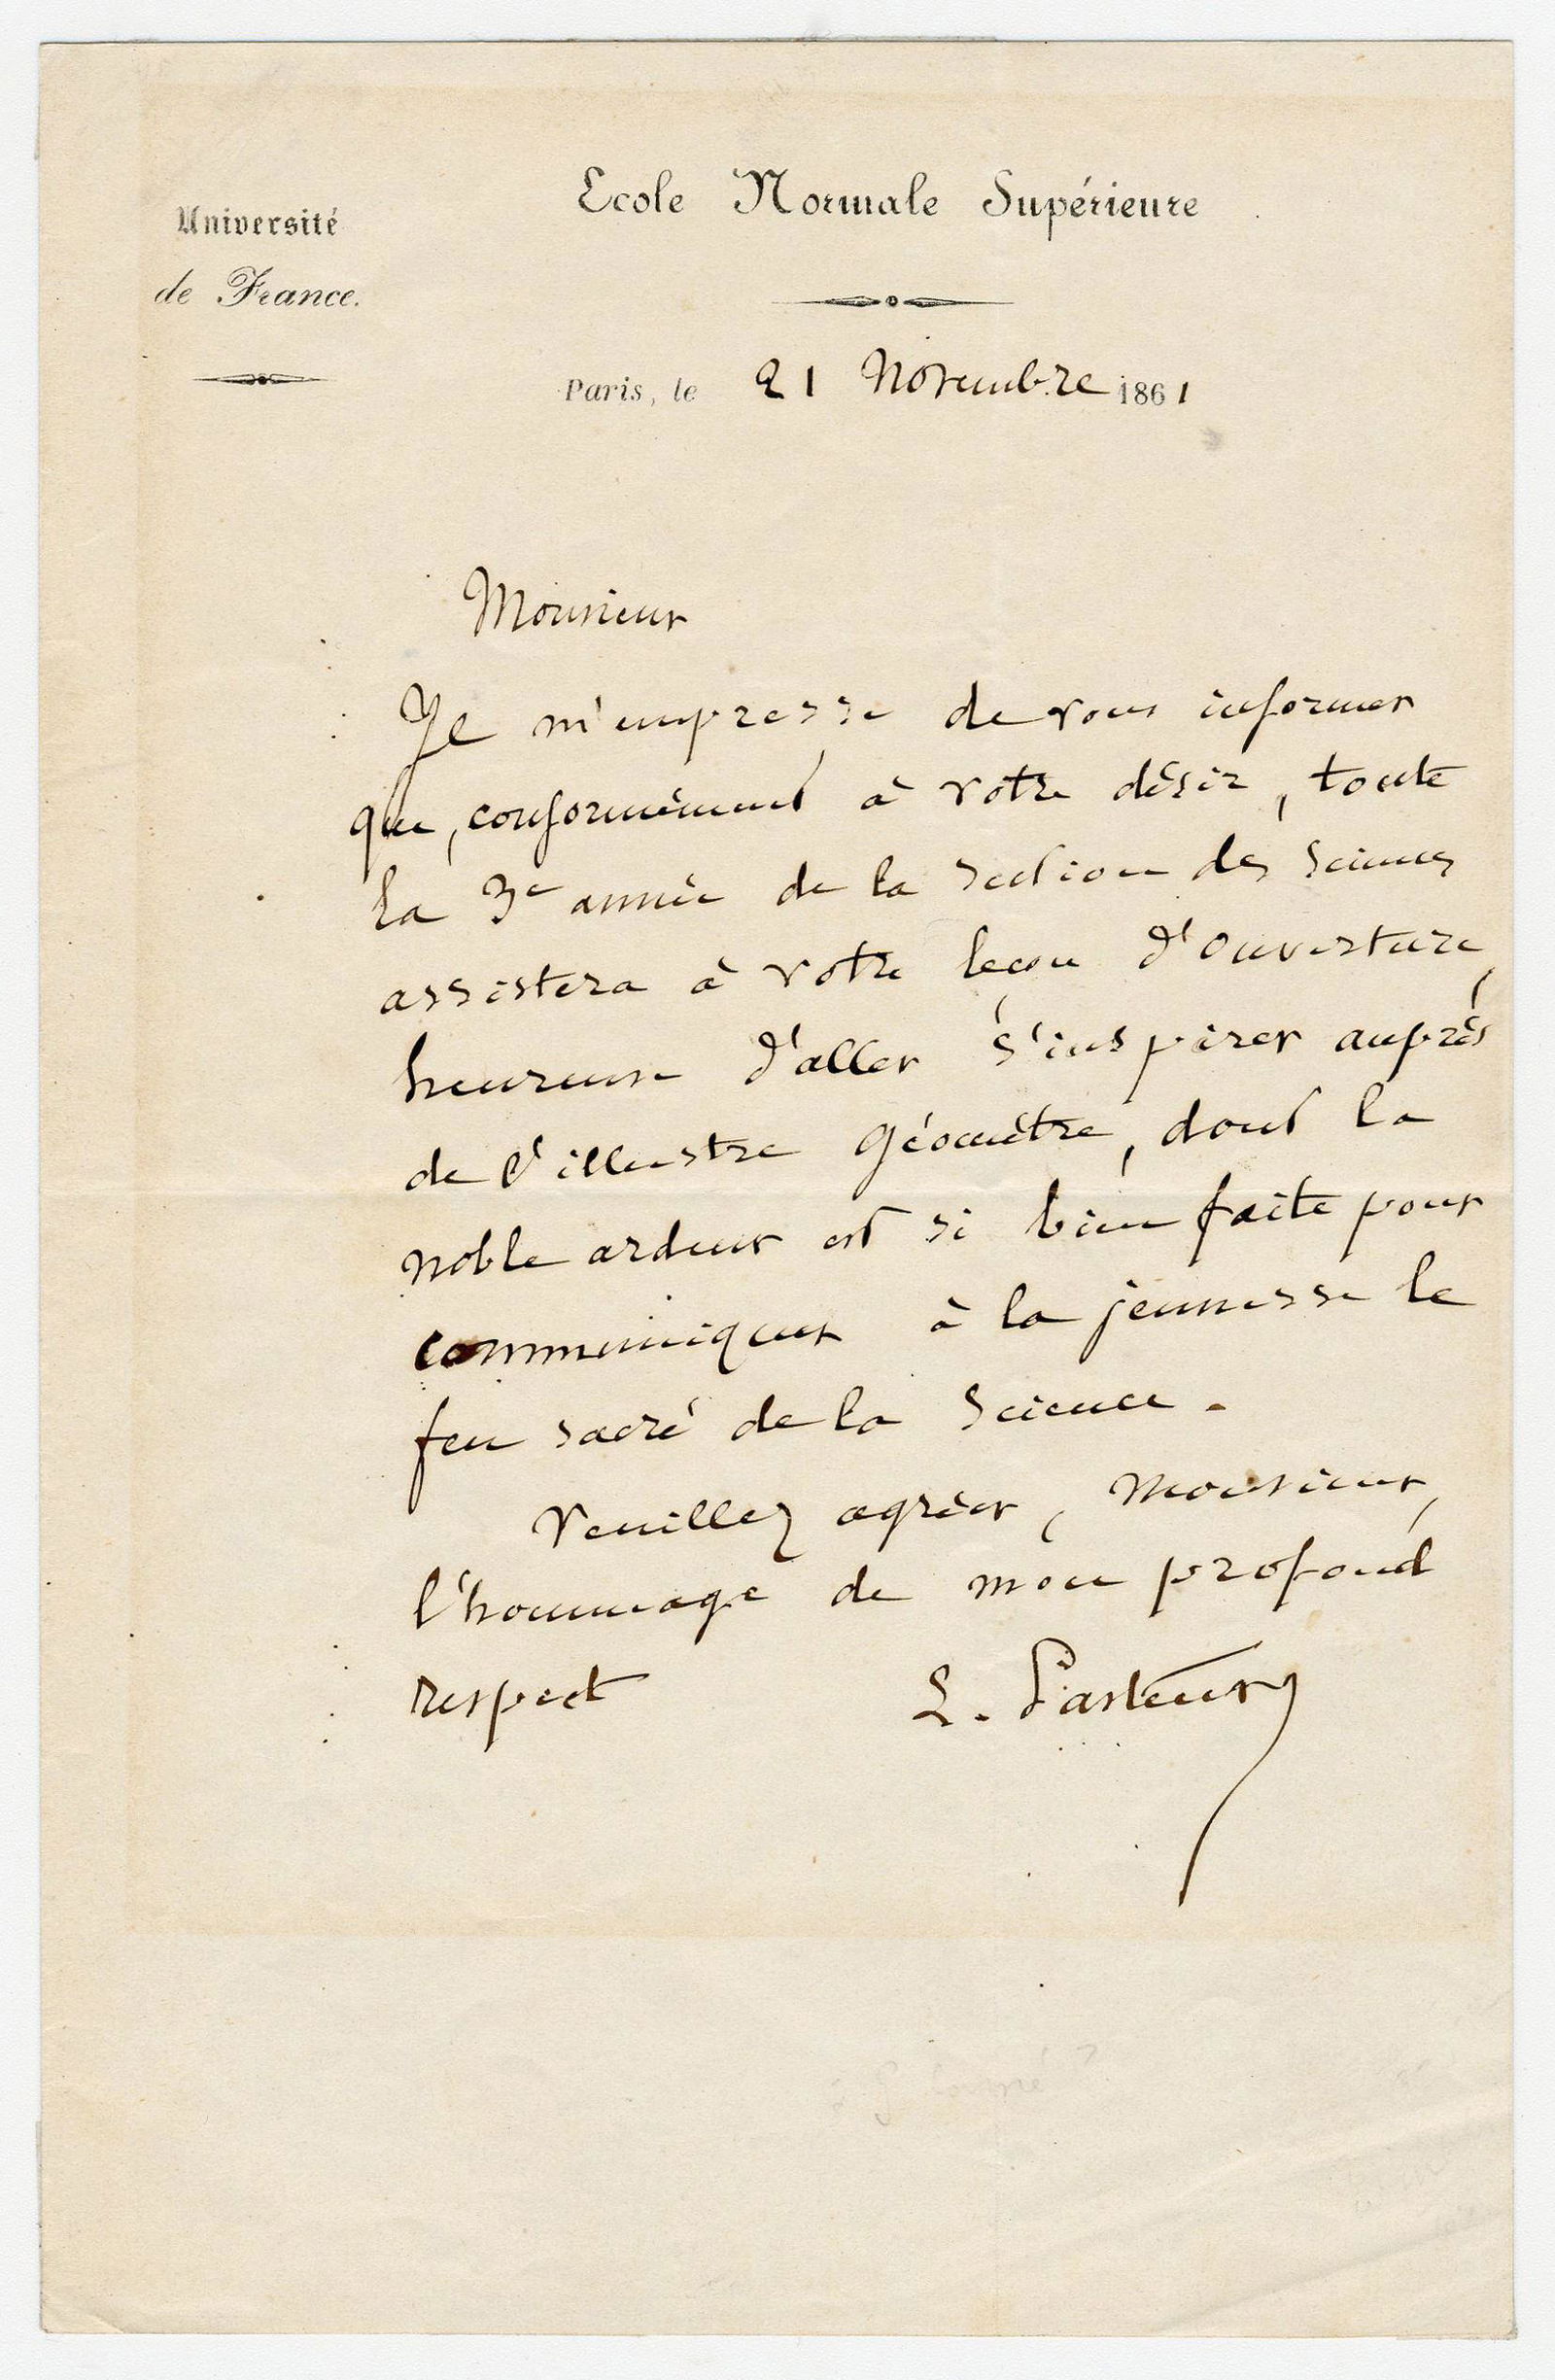 Université
de France.
Ecole Normale Supérieure
Paris, le 21 Novembre 1861
Monsieur
Je m'empresse de vous informer
que, conformément à votre désir, toute
la 3e année de la section des Sciences
assistera à votre leçon d'ouverture,
heureuse d'aller s'inspirer auprès
de l'illustre géomètre, dont la
noble ardeur est si bien faite pour
communiquer à la jeunesse le
feu sacré de la Science.
Veuillez agréer, Monsieur,
l'hommage de mon profond
respect
L. Pasteur